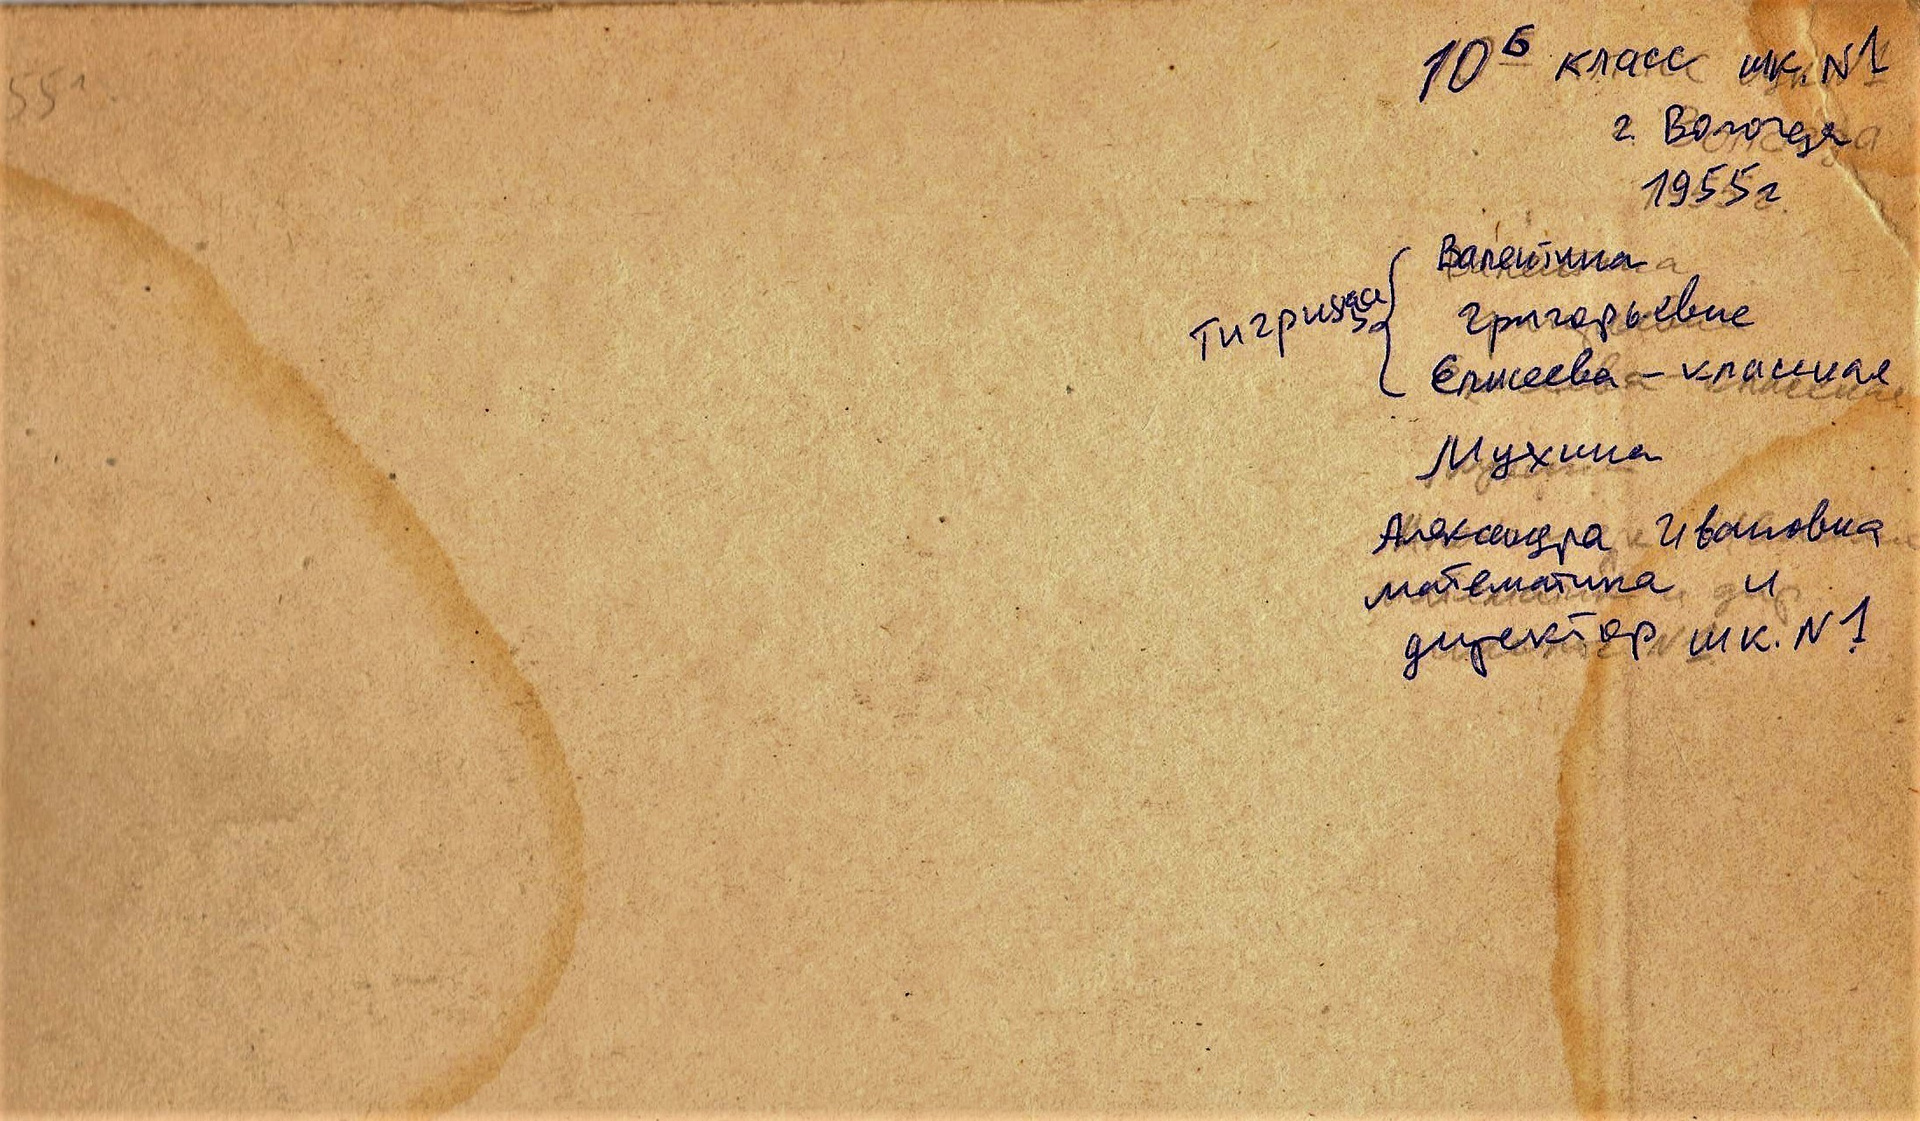 10 Б класс шк. N1
г. Вологда
1955г
Валентина
Тигрица { Григорьевне
Елисеева – классная
Мухина
Александра Ивановна
математика и
директор шк. N1